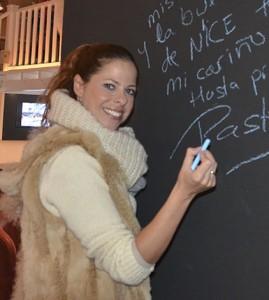 mis
y la bu
de NICE
mi cariño
Hasta pr
Past